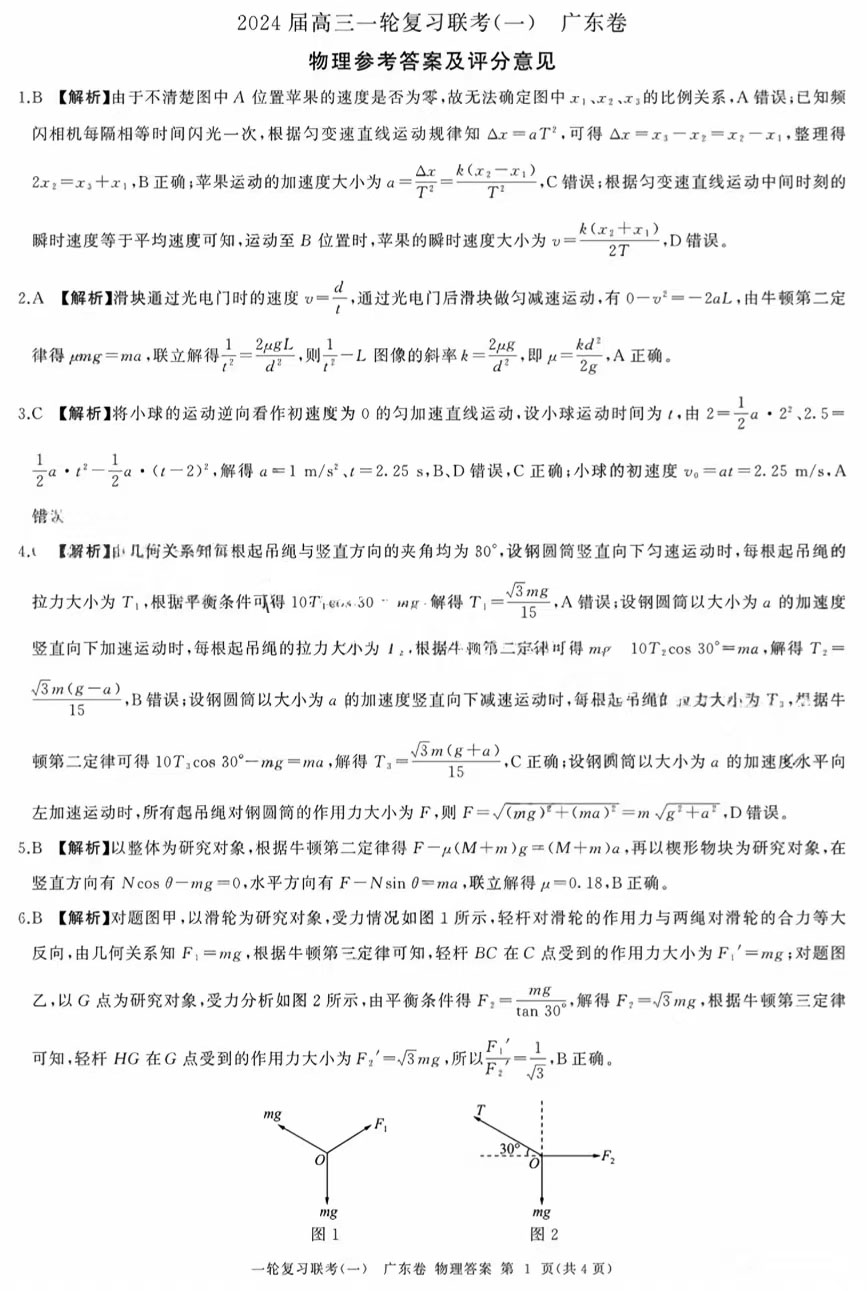 2024 届高三一轮复习联考(一) 广东卷
物理参考答案及评分意见
1.B 【解析】由于不清楚图中 A 位置苹果的速度是否为零,故无法确定图中 x₁、x₂、x₃的比例关系,A 错误;已知频
闪相机每隔相等时间闪光一次,根据匀变速直线运动规律知 Δx=aT²,可得 Δx=x₃-x₂=x₂-x₁,整理得
2x₂=x₃+x₁,B 正确;苹果运动的加速度大小为 a=Δx/T²=k(x₂-x₁)/T²,C 错误;根据匀变速直线运动中间时刻的
瞬时速度等于平均速度可知,运动至 B 位置时,苹果的瞬时速度大小为 v=k(x₂+x₁)/2T,D 错误。
2.A 【解析】滑块通过光电门时的速度 v=d/t,通过光电门后滑块做匀减速运动,有 0-v²=-2aL,由牛顿第二定
律得 μmg=ma,联立解得1/t²=2μgL/d²,则1/t²-L 图像的斜率 k=2μg/d²,即 μ=kd²/2g,A 正确。
3.C 【解析】将小球的运动逆向看作初速度为 0 的匀加速直线运动,设小球运动时间为 t,由 2=1/2a·2²、2.5=
1/2a·t²-1/2a·(t-2)²,解得 a=1 m/s²、t=2.25 s,B、D 错误,C 正确;小球的初速度 v₀=at=2.25 m/s,A
错误
4. 【解析】由几何关系知每根起吊绳与竖直方向的夹角均为 30°,设钢圆筒竖直向下匀速运动时,每根起吊绳的
拉力大小为 T₁,根据平衡条件可得 10T₁cos 30 mg 解得 T₁=√3mg/15,A 错误;设钢圆筒以大小为 a 的加速度
竖直向下加速运动时,每根起吊绳的拉力大小为 T₂,根据牛顿第二定律可得 mg 10T₂cos 30°=ma,解得 T₂=
√3m(g-a)/15,B 错误;设钢圆筒以大小为 a 的加速度竖直向下减速运动时,每根起吊绳的拉力大小为 T₃,根据牛
顿第二定律可得 10T₃cos 30°-mg=ma,解得 T₃=√3m(g+a)/15,C 正确;设钢圆筒以大小为 a 的加速度水平向
左加速运动时,所有起吊绳对钢圆筒的作用力大小为 F,则 F=√((mg)²+(ma)²)=m√(g²+a²),D 错误。
5.B 【解析】以整体为研究对象,根据牛顿第二定律得 F-μ(M+m)g=(M+m)a,再以楔形物块为研究对象,在
竖直方向有 Ncos θ-mg=0,水平方向有 F-Nsin θ=ma,联立解得 μ=0.18,B 正确。
6.B 【解析】对题图甲,以滑轮为研究对象,受力情况如图 1 所示,轻杆对滑轮的作用力与两绳对滑轮的合力等大
反向,由几何关系知 F₁=mg,根据牛顿第三定律可知,轻杆 BC 在 C 点受到的作用力大小为 F₁′=mg;对题图
乙,以 G 点为研究对象,受力分析如图 2 所示,由平衡条件得 F₂=mg/tan 30°,解得 F₂=√3mg,根据牛顿第三定律
可知,轻杆 HG 在 G 点受到的作用力大小为 F₂′=√3mg,所以F₁′/F₂′=1/√3,B 正确。
mg F₁
O
mg
图 1
T
30° O F₂
mg
图 2
一轮复习联考(一) 广东卷 物理答案 第 1 页(共 4 页)